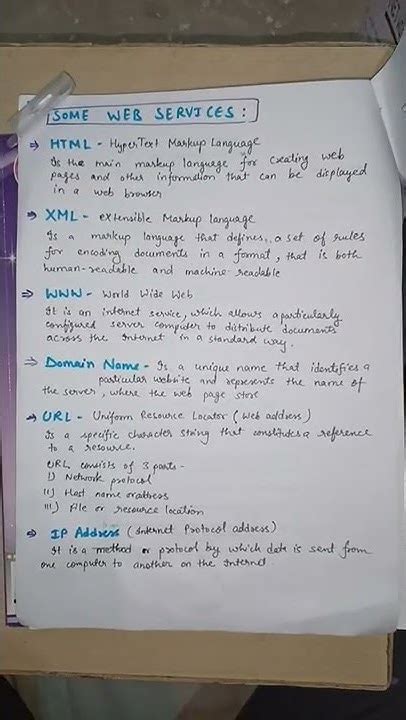 SOME WEB SERVICES :
⇒ HTML - HyperText Markup Language
Is the main markup language for creating web
pages and other information that can be displayed
in a web browser
⇒ XML - extensible Markup language
Is a markup language that defines, a set of rules
for encoding documents in a format, that is both
human-readable and machine-readable
⇒ WWW - World Wide Web
It is an internet service, which allows a particularly
configured server computer to distribute documents
across the Internet in a standard way.
⇒ Domain Name - Is a unique name that identifies a
particular website and represents the name of
the server, where the web page store
⇒ URL - Uniform Resource Locator (Web address)
Is a specific character string that constitutes a reference
to a resource.
URL consists of 3 parts -
I) Network protocol
II) Host name or address
III) File or resource location
⇒ IP Address (Internet Protocol address)
It is a method or protocol by which data is sent from
one computer to another on the Internet